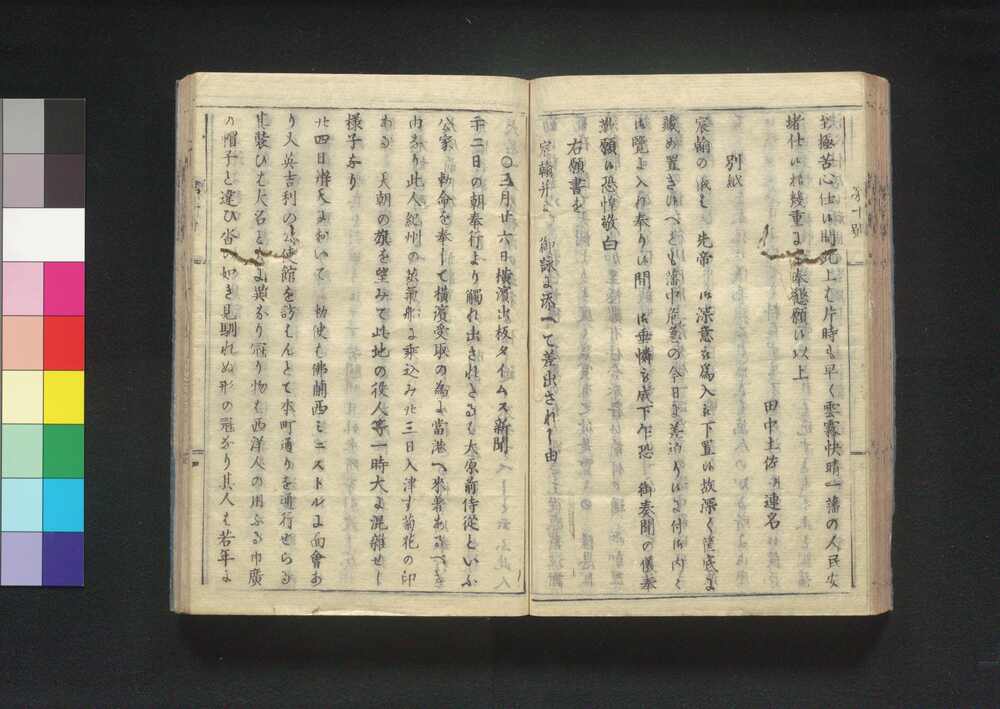 至極苦心仕候間此上は片時も早く雲霧快晴一藩の人民安
堵仕候様幾重にも奉懇願候以上
田中土佐 連名
別紙
宸翰の儀は 先帝 御深意を為入 下置候故深く筐底に
蔵め置き候へども藩中 の今日に差迫り候に付御内々
御覧に入れ奉り候間 御垂憐を成下乍恐 御奏聞の儀奉
歎願候恐惶敬白
右願書を
宸翰并に 御詠に添へて差出されし由
〇三月廿六日横濱出板タイムス新聞
千二日の朝奉行より觸れ出されたるは大原前侍従といふ
公家 勅命を奉して横濱受取の為に當港へ来着あるべき
由なり此人紀州の蒸氣船に乗込み廿三日入津す菊花の印
ある 天朝の旗を望みて此地の役人等一時大に混雑せし
様子なり
廿四日 に於いて 勅使は佛蘭西ミニストルに面會あ
り又英吉利の公使館を訪はんとて本町通りを通行せらる
其装ひは大名と 異なり冠り物は西洋人の用ふる巾廣
の帽子と違ひ沓の如き見馴れぬ形の冠なり其人は若年に